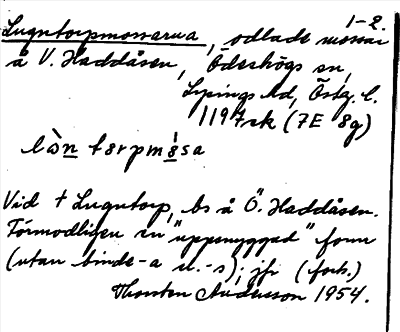 1-2.
Lugntorpmossarna, odlade mossar
å V. Haddåsen, Ödeshögs sn,
Lysings hd, Östg. l.
1197 sk (7E 8g)
lὰn tɷrpmɷ̀sa
Vid † Lugntorp, bs å Ö. Haddåsen.
Förmodligen en "uppsnyggad" form
(utan binde-a el. -s); jfr (forts.)
Thorsten Andersson 1954.